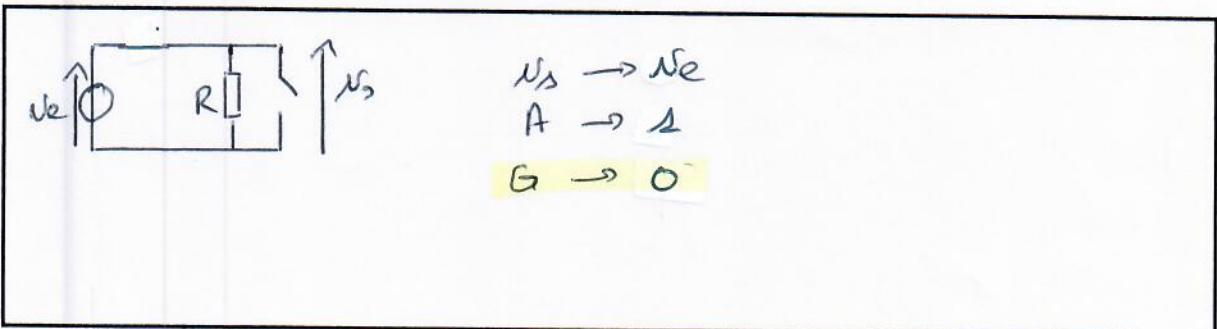 Ve
R
Vs
Vs → Ve
A → 1
G → 0